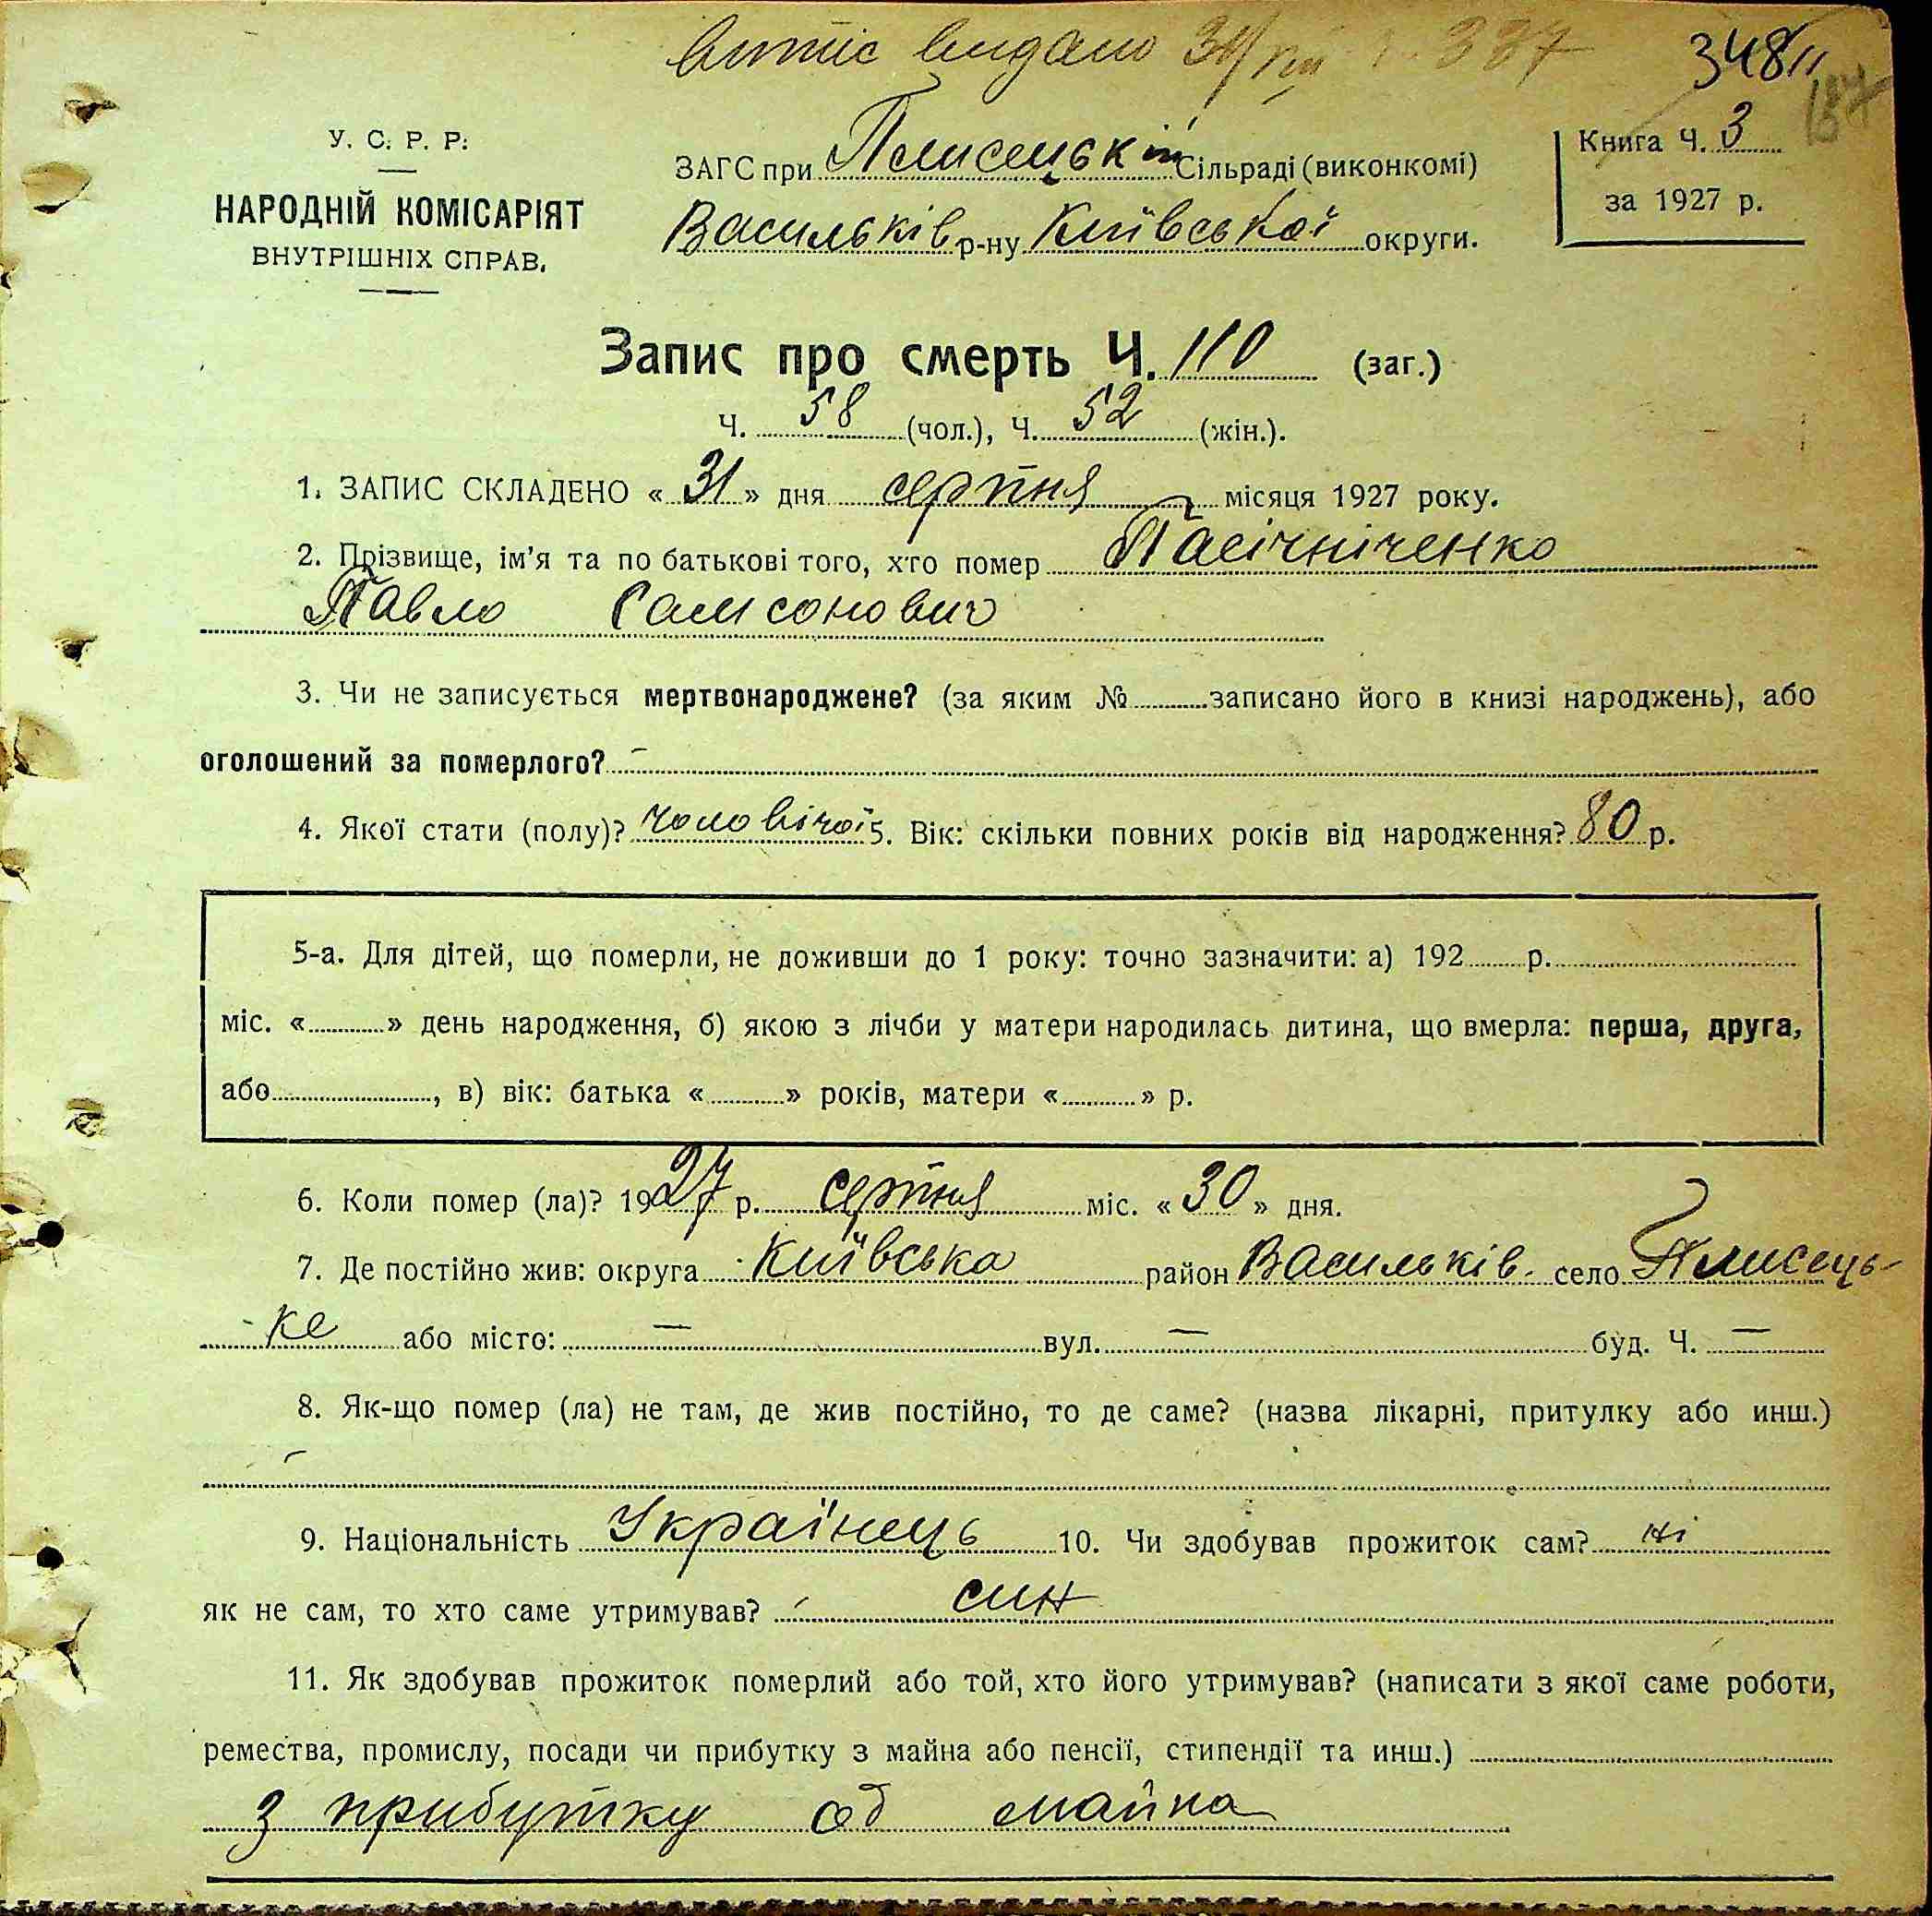 витіс видано 31/VIII 337
348
У. С. Р. Р.
НАРОДНІЙ КОМІСАРІЯТ
ВНУТРІШНІХ СПРАВ.
ЗАГС при Плисецькій Сільраді (виконкомі)
Васильків р-ну Київської округи.
Книга Ч. 3
за 1927 р.
Запис про смерть Ч. 110 (заг.)
Ч. 58 (чол.), Ч. 52 (жін.).
1. ЗАПИС СКЛАДЕНО « 31 » дня серпня місяця 1927 року.
2. Прізвище, ім'я та по батькові того, хто помер Пасічніченко
Павло Самсонович
3. Чи не записується мертвонароджене? (за яким № записано його в книзі народжень), або
оголошений за померлого? –
4. Якої стати (полу)? чоловічої 5. Вік: скільки повних років від народження? 80 р.
5-а. Для дітей, що померли, не доживши до 1 року: точно зазначити: а) 192 р.
міс. « » день народження, б) якою з лічби у матери народилась дитина, що вмерла: перша, друга,
або , в) вік: батька « » років, матери « » р.
6. Коли помер (ла)? 1927 р. серпня міс. « 30 » дня.
7. Де постійно жив: округа Київська район Васильків. село Плисець-
ке або місто: — вул. — буд. Ч. —
8. Як-що помер (ла) не там, де жив постійно, то де саме? (назва лікарні, притулку або инш.)
–
9. Національність Українець 10. Чи здобував прожиток сам? ні
як не сам, то хто саме утримував? син
11. Як здобував прожиток померлий або той, хто його утримував? (написати з якої саме роботи,
ремества, промислу, посади чи прибутку з майна або пенсії, стипендії та инш.)
з прибутку од майна